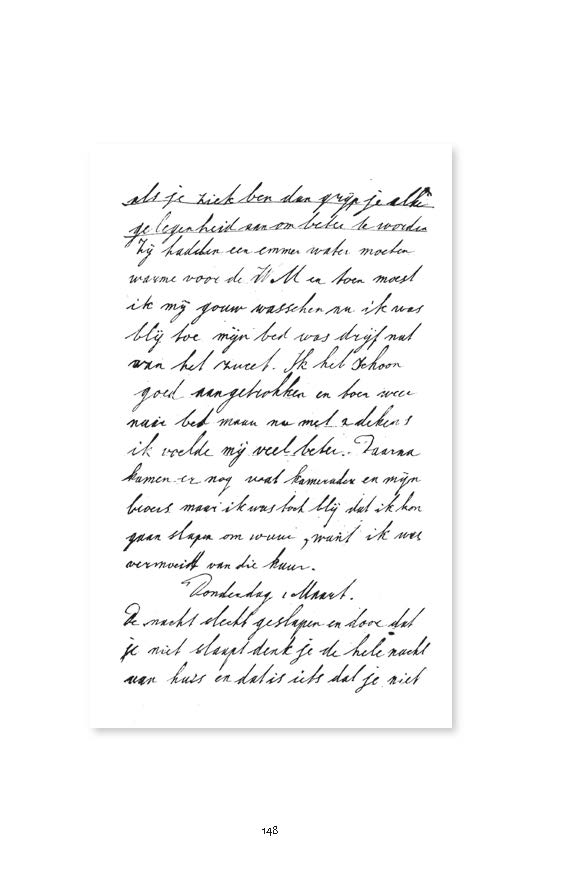 als je ziek ben dan grijp je alke
gelegenheid aan om beter te worden
Zij hadden een emmer water moeten
warme voor de W M en toen moest
ik mij gouw wasschen nu ik was
blij toe mijn bed was drijf nat
van het zweet. Ik het schoon
goed aangetrokken en toen weer
naar bed maar nu met 2 dekens
ik voelde mij veel beter. Daarna
kamen er nog wat kameraden en mijn
broers maar ik was toch blij dat ik kon
gaan slapen om uur, want ik was
vermoeit van die kuur.
Donderdag 1 Maart.
De nacht slecht geslapen en door dat
je niet slaapt denk je de hele nacht
van huis en dat is iets dat je niet
148